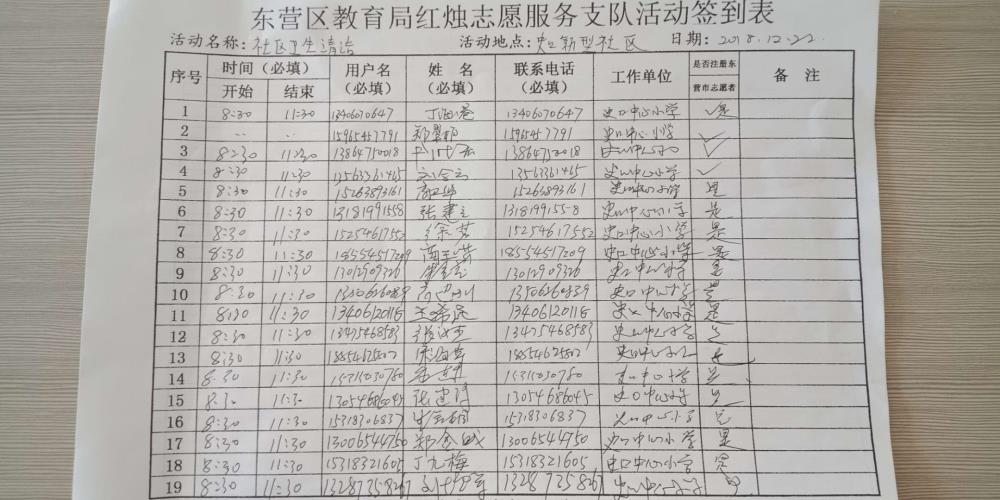 东营区教育局红烛志愿服务支队活动签到表
活动名称：社区卫生清洁 活动地点：史口新型社区 日期：2018.12.22
序号 时间（必填） 用户名（必填） 姓名（必填） 联系电话（必填） 工作单位 是否注册东营市志愿者 备注
开始 结束
1 8:30 11:30 13406070647 13406070647 史口中心小学 ✓是
2 15965457791 郑翠郡 15965457791 史口中心小学 ✓
3 8:30 11:30 13864750018 13864750018 史口中心小学 ✓
4 8:30 11:30 13563361465 13563361465 史口中心小学 ✓
5 8:30 11:30 15263893161 15263893161 史口中心小学 是
6 8:30 11:30 13181991558 张建文 13181991558 史口中心小学 是
7 8:30 11:30 15254617552 徐芳 15254617552 史口中心小学 是
8 8:30 11:30 18554517209 18554517209 史口中心小学 是
9 8:30 11:30 13012909326 13012909326 史口中心小学 是
10 8:30 11:30 13506260839 13506260839 史口中心小学 是
11 8:30 11:30 13406120116 13406120116 史口中心小学 是
12 8:30 11:30 13475468583 13475468583 史口中心小学 是
13 8:30 11:30 史口中心小学 是
14 8:30 11:30 史口中心小学 是
15 8:30 11:30 13054686045 13054686045 史口中心小学 是
16 8:30 11:30 15318306837 15318306837 史口中心小学 是
17 8:30 11:30 13006544750 郑金城 13006544750 史口中心小学 是
18 8:30 11:30 15318321605 丁元梅 15318321605 史口中心小学 是
19 8:30 11:30 13287358267 13287358267 史口中心小学